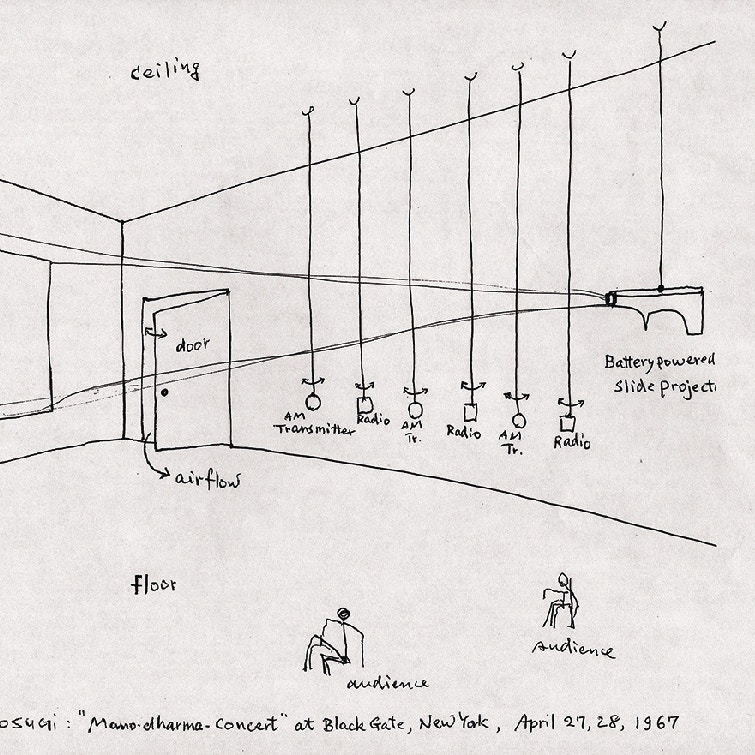 ceiling
door
AM
Transmitter
Radio
AM
Tr.
Radio
AM
Tr.
Radio
Battery powered
slide project
airflow
floor
audience
audience
osugi: "Mano-dharma-Concert" at Black Gate, New York, April 27, 28, 1967